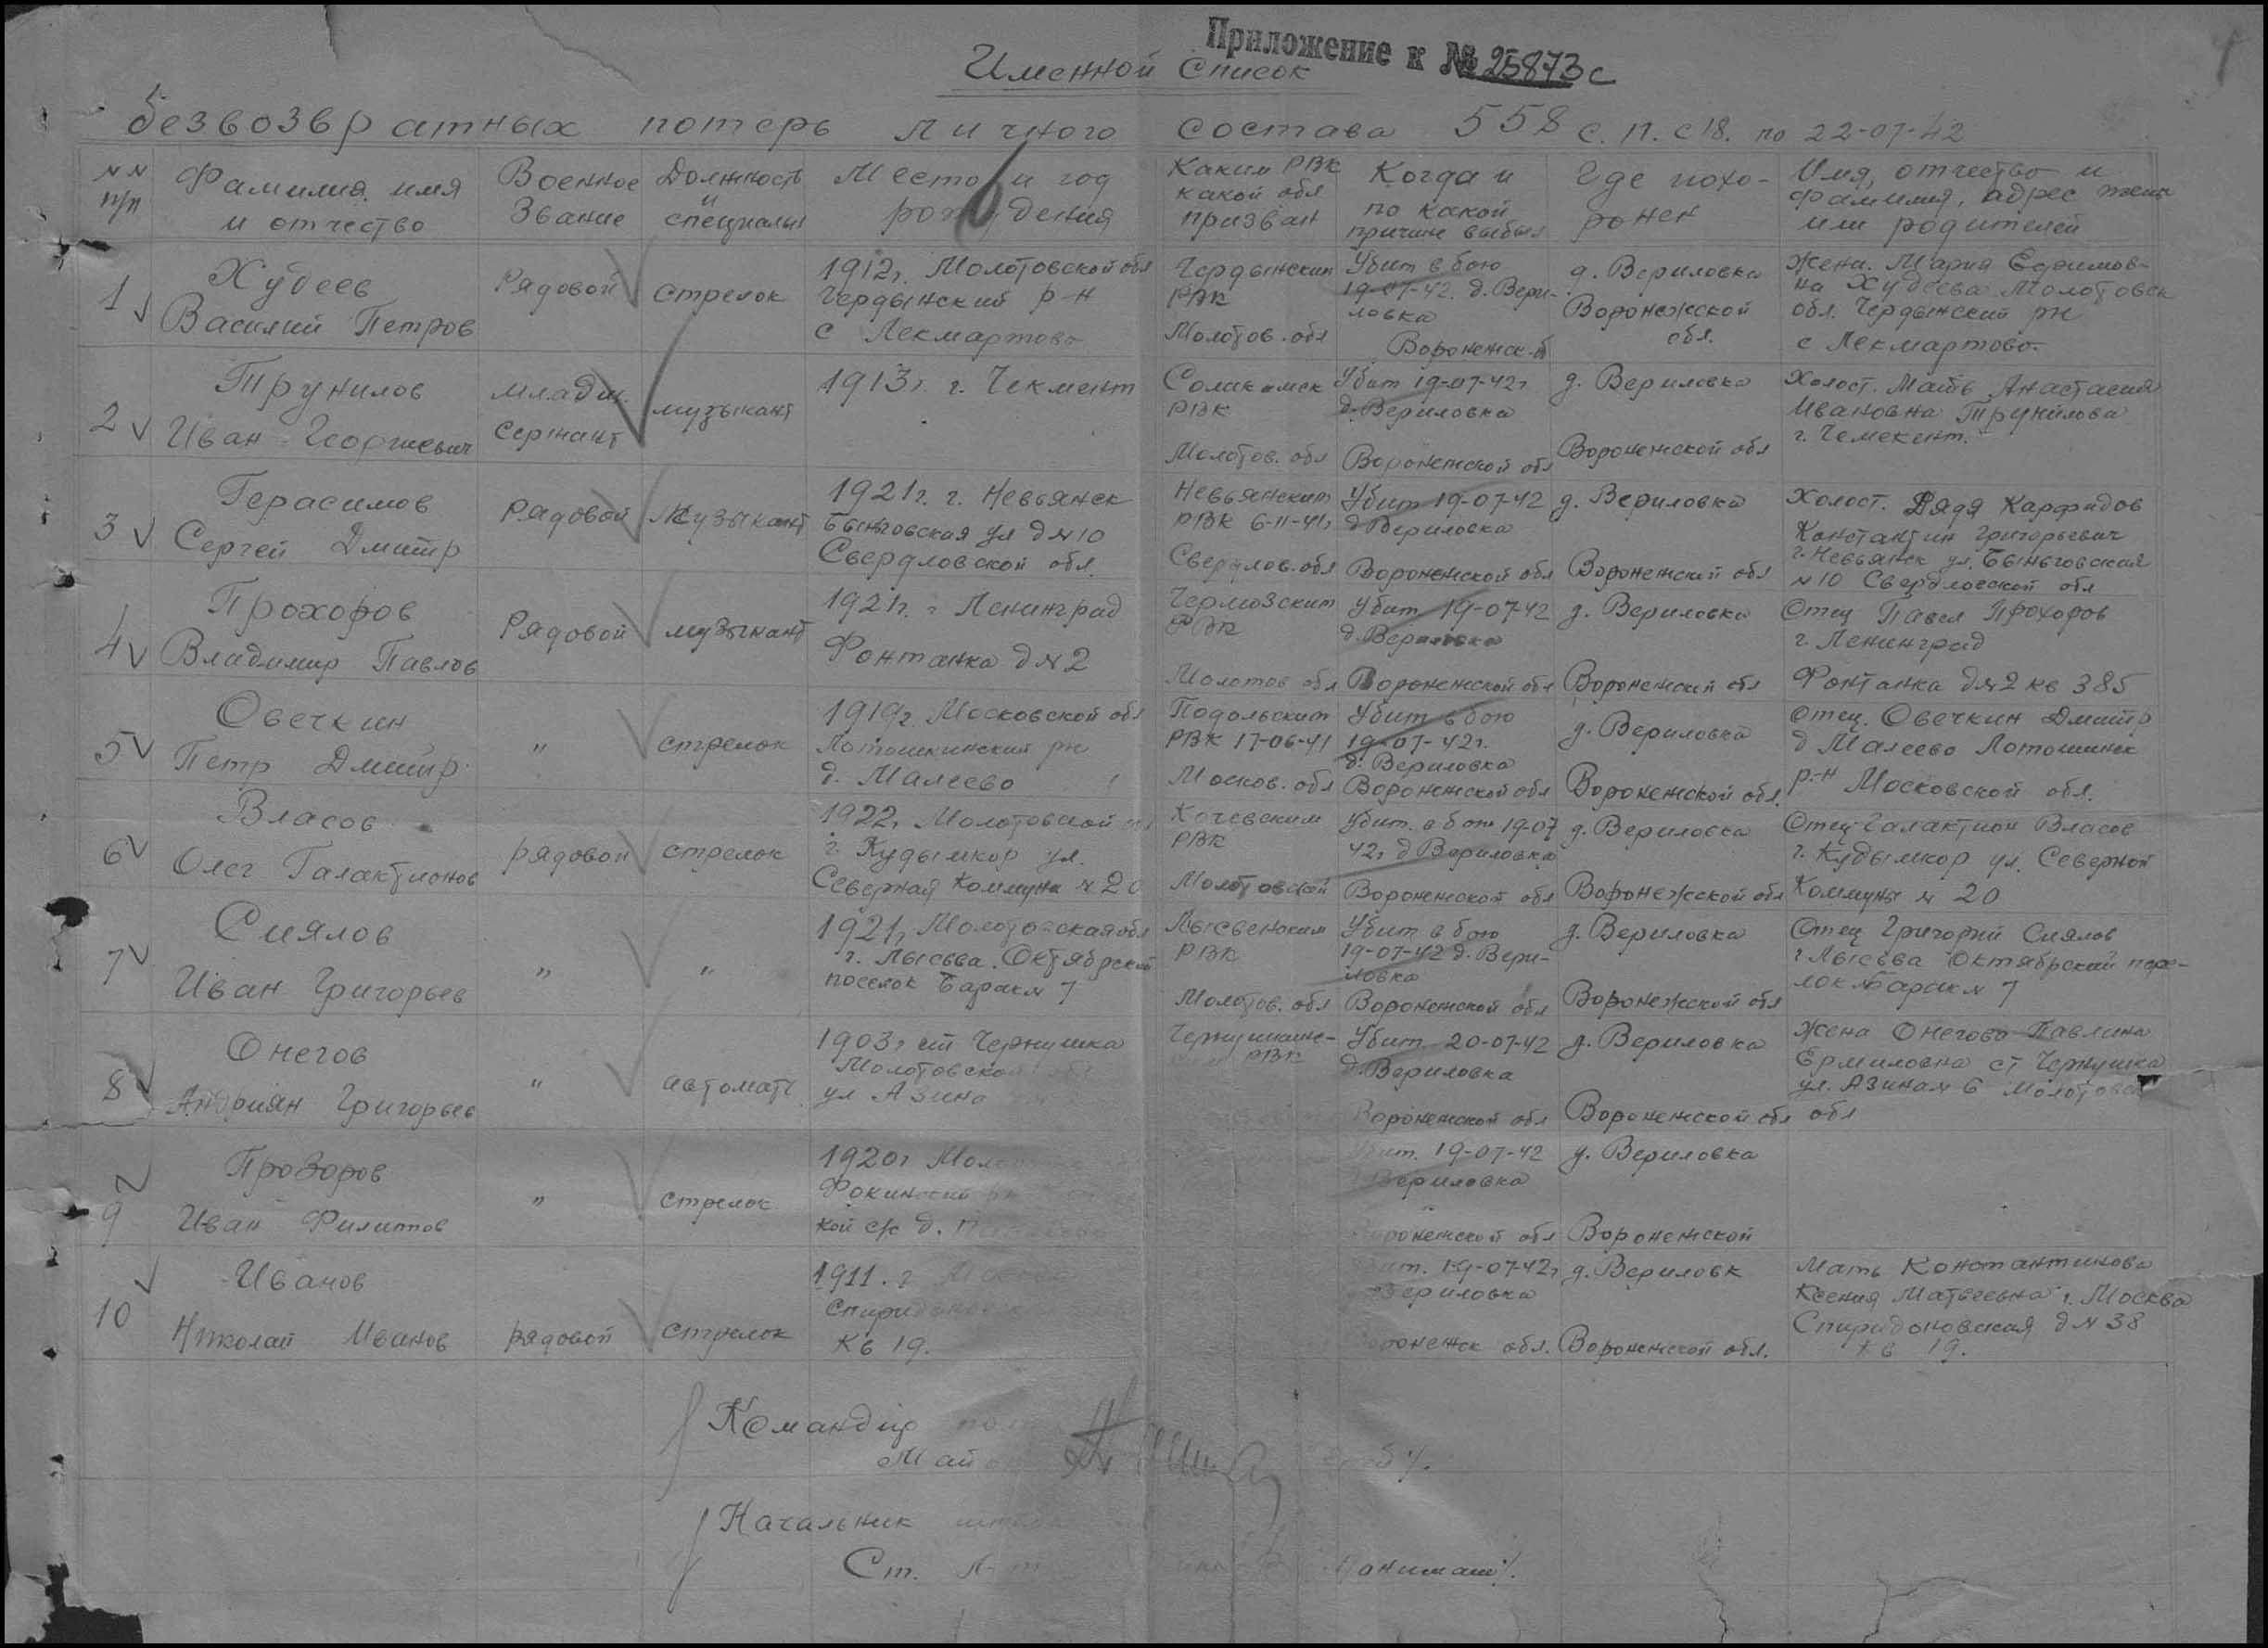 Приложение к № 25873с
Именной Список
безвозвратных потерь личного состава 558 с.п. с 18. по 22-07-42
№№ п/п
Фамилия, имя и отчество
Военное Звание
Должность и специальн
Место и год рождения
Каким РВК какой обл призван
Когда и по какой причине выбыл
Где похоронен
Имя, отчество и фамилия, адрес жены или родителей
1
Худеев
Василий Петров
Рядовой
стрелок
1912г. Молотовской обл
Чердынский р-н
с Лекмартово
Чердынским
РВК
Молотов. обл
Убит в бою
19-07-42. д. Вери-
ловка
Воронежс-й
д. Вериловка
Воронежской
обл.
Жена. Мария Ефимов-
на Худеева Молотовск
обл. Чердынский рн
с Лекмартово.
2
Трунилов
Иван Георгиевич
младш.
Сержант
музыкант
1913г. г. Чекмент
Соликамск
РВК
Молотов. обл
Убит 19-07-42г
д. Вериловка
Воронежской обл
д. Вериловка
Воронежской обл
Холост. Мать Анастасия
Ивановна Трунилова
г. Чемекент.
3
Герасимов
Сергей Дмитр
Рядовой
Музыкант
1921г. г. Невьянск
Быньговская ул д№10
Свердловской обл.
Невьянским
РВК 6-11-41г
Свердлов. обл
Убит 19-07-42
д Вериловка
Воронежской обл
д. Вериловка
Воронежской обл
Холост. Дядя Карфидов
Константин Григорьевич
г. Невьянск ул. Быньговская
№10 Свердловской обл
4
Прохоров
Владимир Павлов
Рядовой
музыкант
1921г. г Ленинград
Фонтанка д№2
Чермозским
РВК
Молотов обл
Убит 19-07-42
д. Вериловка
Воронежской обл
д. Вериловка
Воронежской обл
Отец Павел Прохоров
г. Ленинград
Фонтанка д№2 кв 385
5
Овечкин
Петр Дмитр.
"
стрелок
1919г. Московской обл
Лотошинский рн
д. Малеево
Подольским
РВК 17-06-41
Москов. обл
Убит в бою
19-07-42г.
д. Вериловка
Воронежской обл
д. Вериловка
Воронежской обл.
Отец. Овечкин Дмитр
д Малеево Лотошинск
р-н Московской обл.
6
Власов
Олег Галактионов
рядовой
стрелок
1922г Молотовской
г. Кудымкор ул.
Северная Коммуна № 20
Кочевским
РВК
Молотовской
Убит. в бою 19-07
42г д Вериловка
Воронежской обл
д. Вериловка
Воронежской обл
Отец Галактион Власов
г. Кудымкор ул. Северной
Коммуны № 20
7
Сиялов
Иван Григорьев
"
"
1921г Молотовская обл
г. Лысьва. Октябрский
поселок барак№ 7
Лысвенским
РВК
Молотов. обл
Убит в бою
19-07-42 д. Вери-
ловка
Воронежской обл
д. Вериловка
Воронежской обл
Отец Григорий Сиялов
г Лысьва Октябрский
барак№ 7
8
Онегов
Андриян Григорьев
"
автомат
1903г ст Чернушка
Молотовской
ул Азина
РВК
Убит 20-07-42
д. Вериловка
Воронежской обл
д. Вериловка
Воронежской обл
Жена Онегова Павлина
Ермиловна ст Чернушка
ул. Азина№ 6 Молотовск
обл
9
Прозоров
Иван Филипов
"
стрелок
1920г
Фокинский
кой с/с д.
19-07-42
Вериловка
Воронежской обл
д. Вериловка
Воронежской
10
Иванов
Николай Иванов
рядовой
Стрелок
1911. г
кв 19.
19-07-42г
Вериловка
обл.
д. Вериловк
Воронежской обл.
Мать Константинова
Ксения Матвеевна г. Москва
Спиридоновская д№38
кв 19.
Командир
Май
Начальник
Ст.